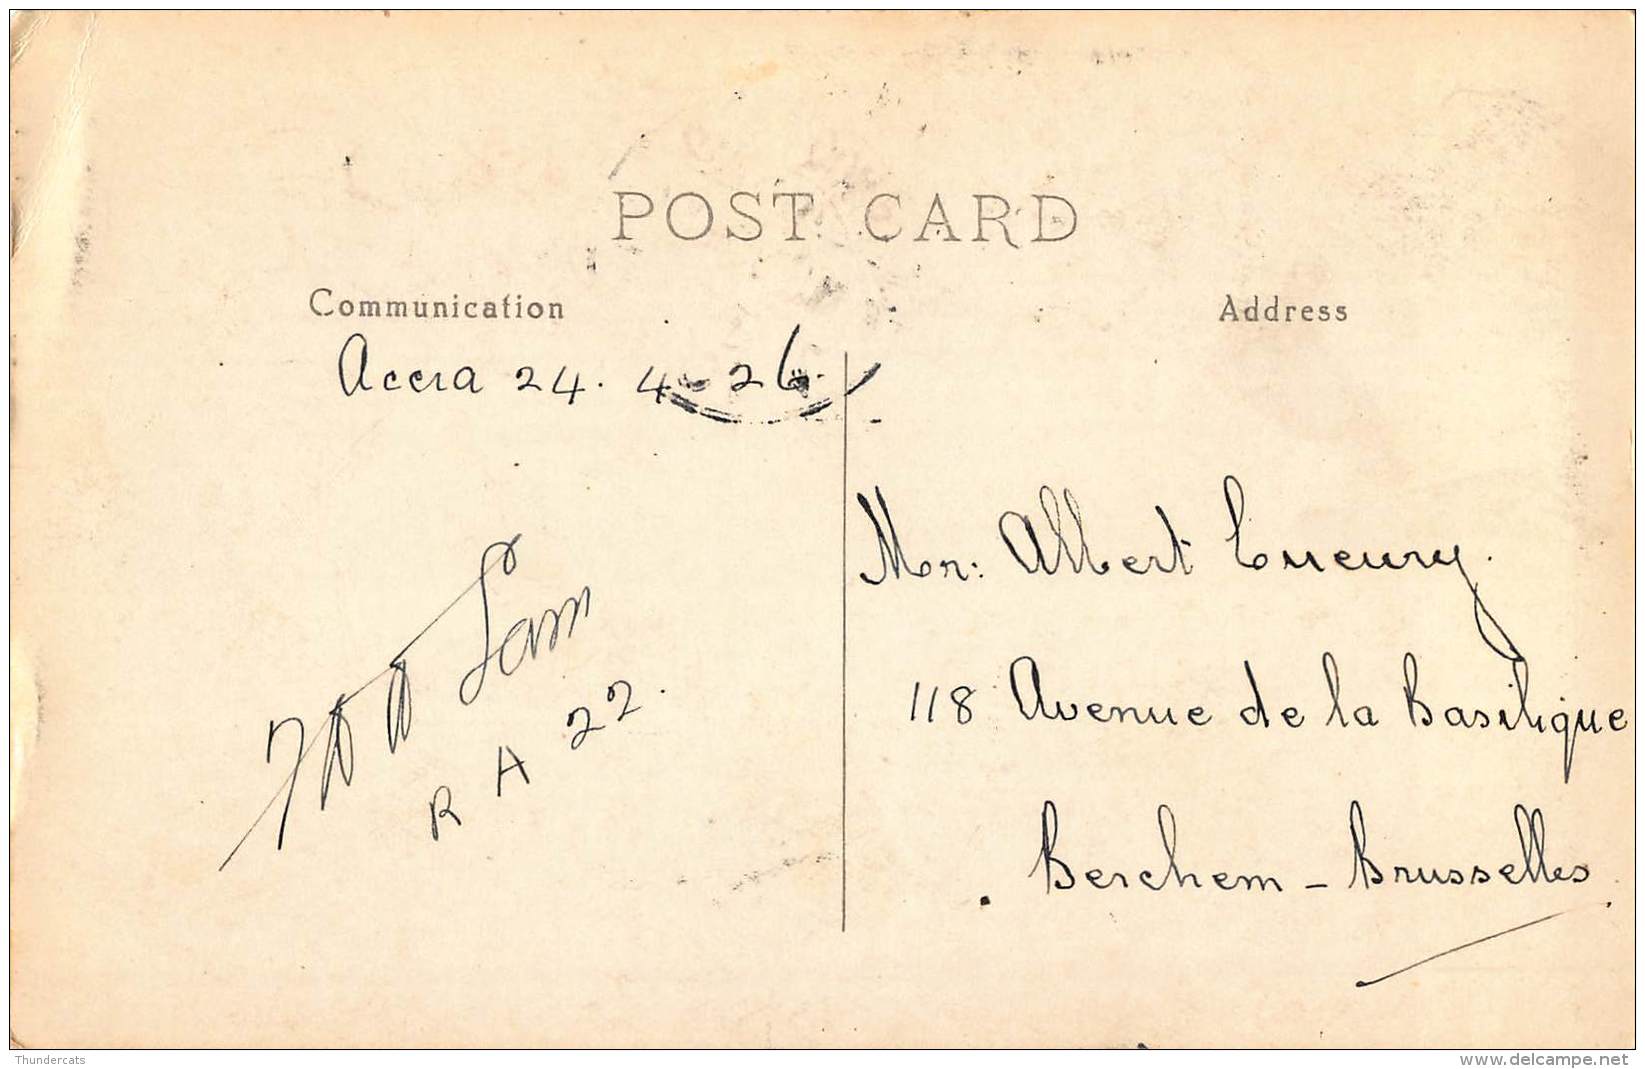 POST CARD
Communication
Address
Accra 24. 4 - 26.
Sam
R A 22.
Mr: Albert
118 Avenue de la Basilique
Berchem - Bruxelles
Thundercats
www.delcampe.net